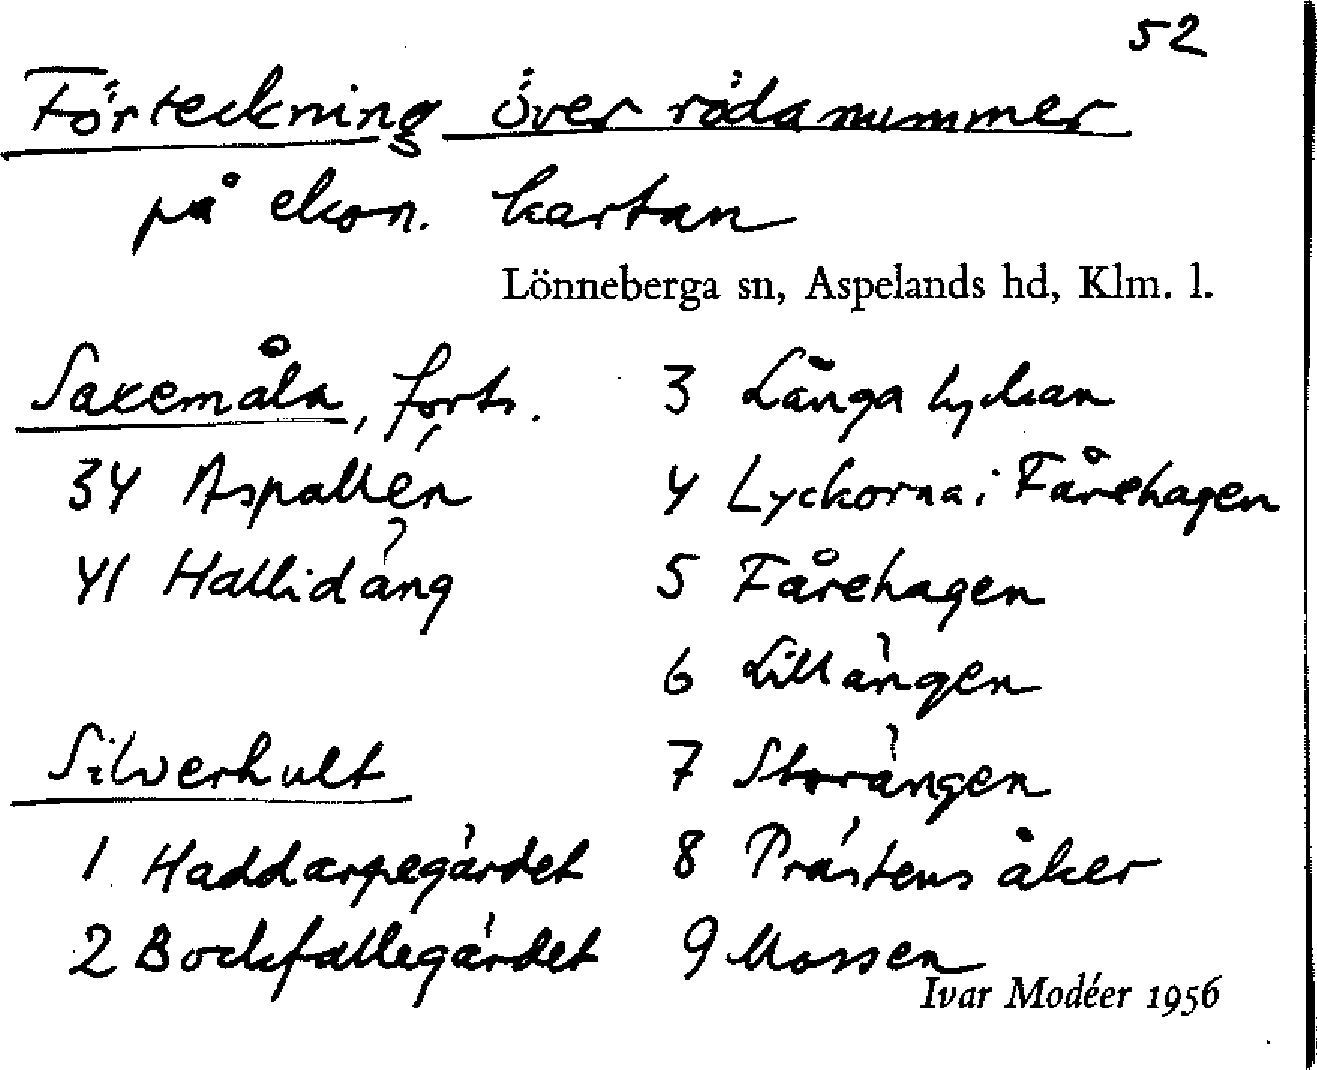 52
Förteckning över röda nummer
på ekon. kartan
Lönneberga sn, Aspelands hd, Klm. l.
Saxemåla, forts.
34 Aspallén
41 Hallidäng
Silverhult
1 Haddarpegärdet
2 Bockfallegärdet
3 Långa lyckan
4 Lyckorna i Fårehagen
5 Fårehagen
6 Lillängen
7 Storängen
8 Prästens åker
9 Mossen
Ivar Modéer 1956